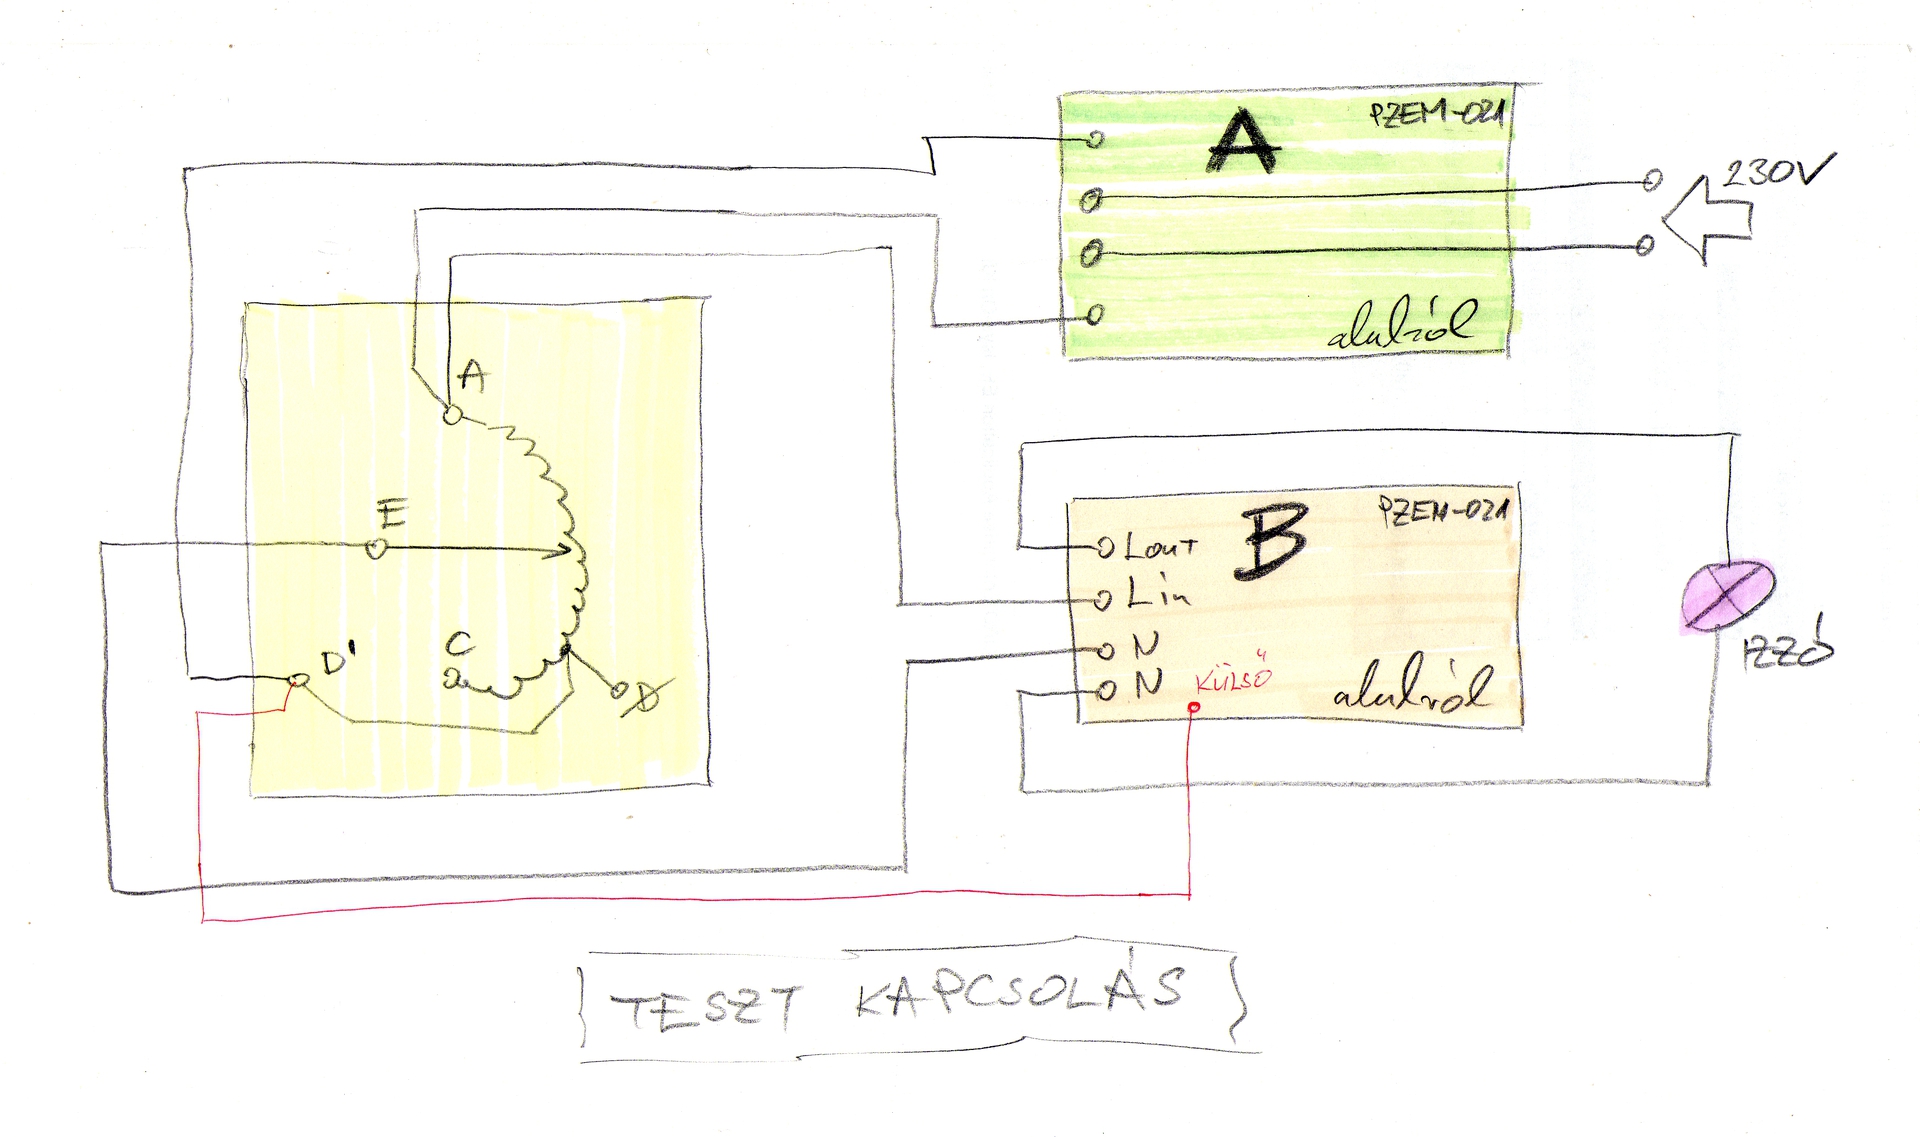 PZEM-021
A
230V
alulról
A
E
C
D'
D
PZEM-021
B
Lout
Lin
N
N
KÜLSŐ
alulról
IZZÓ
TESZT KAPCSOLÁS